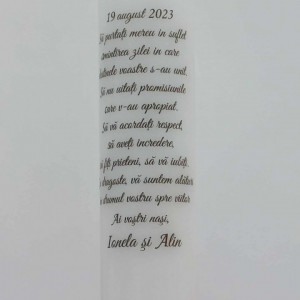 19 august 2023
Să purtați mereu în suflet
amintirea zilei în care
voastre s-au unit.
Să nu uitați promisiunile
care v-au apropiat.
Să vă acordați respect,
să aveți încredere,
fiți prieteni, să vă iubiți,
dragoste, vă suntem alături
drumul vostru spre viitor.
Ai voștri nași,
Ionela și Alin